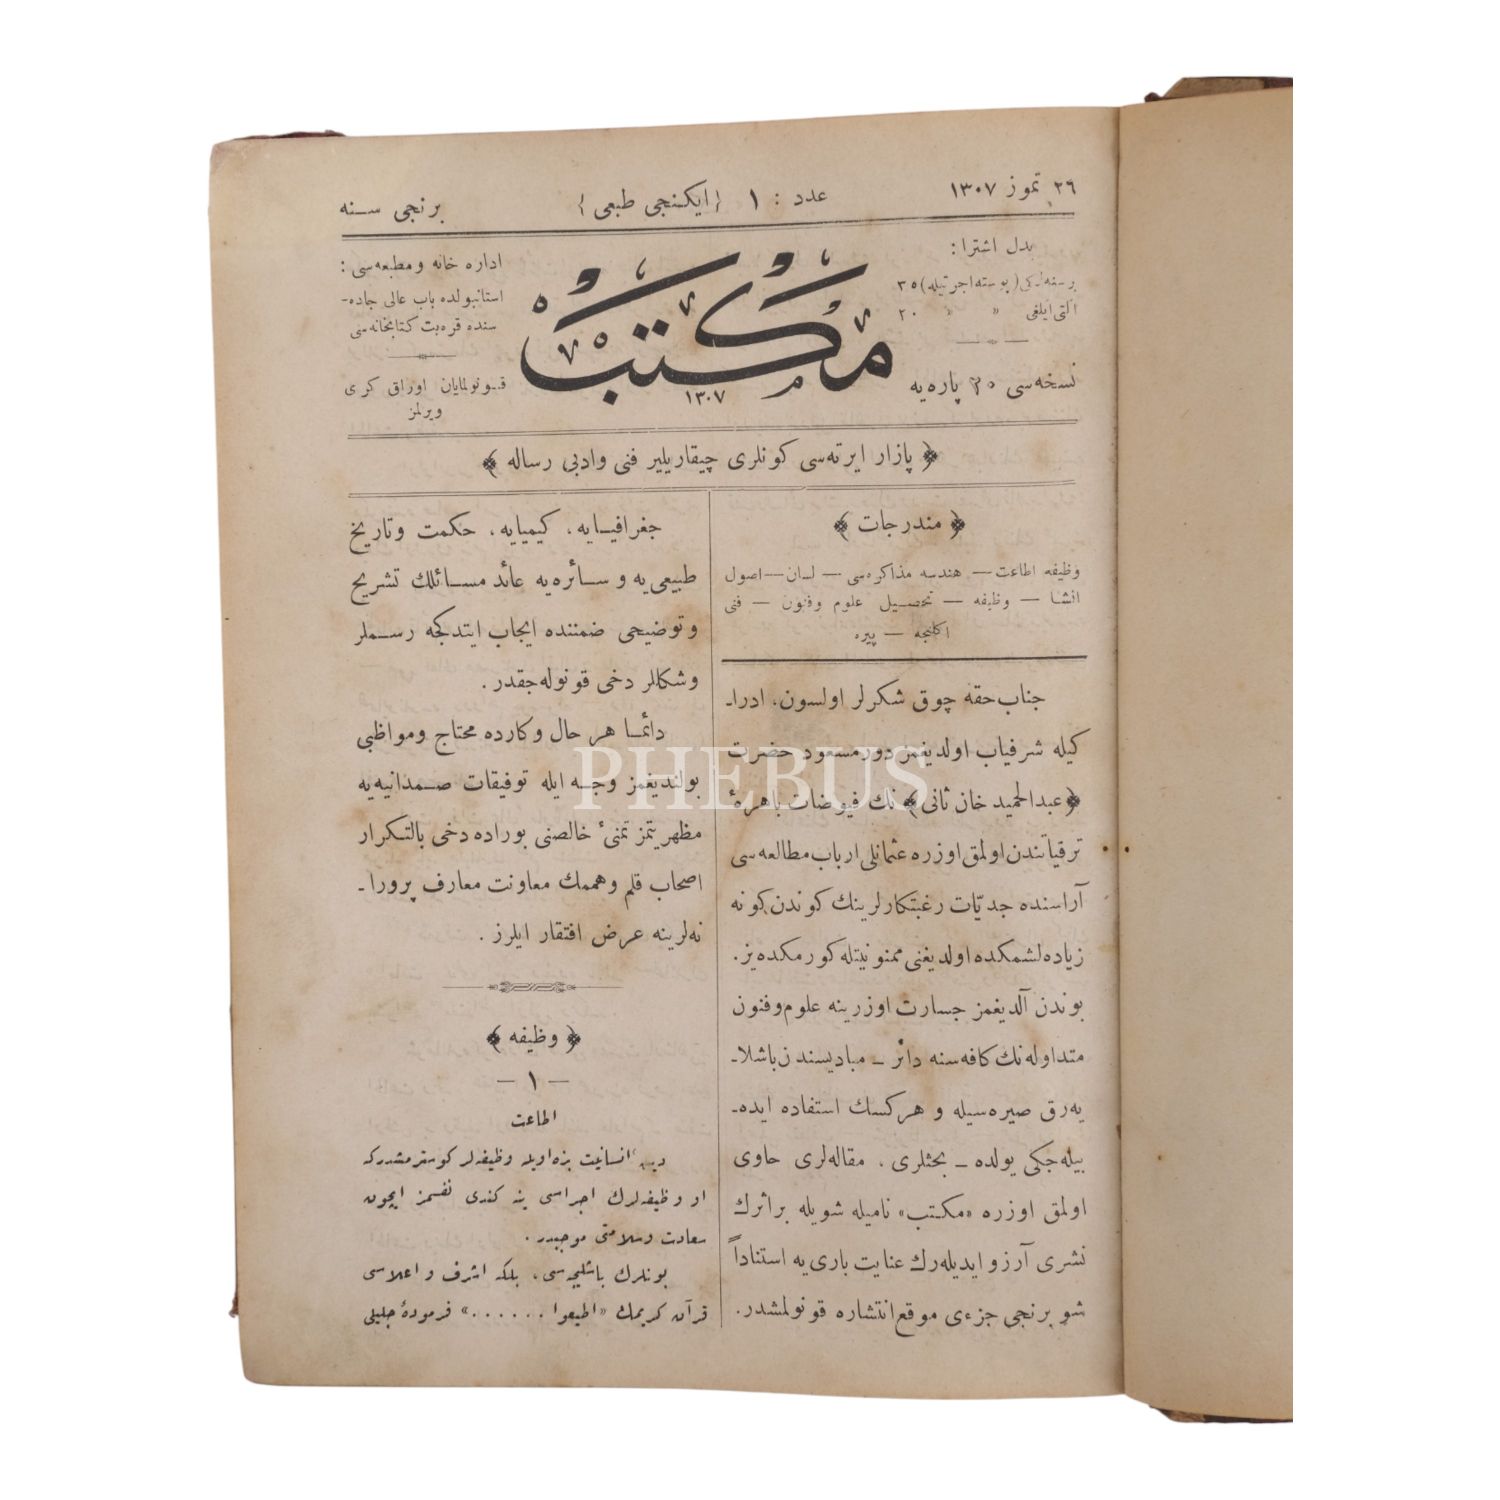 ٢٩ تموز ١٣٠٧
عدد : ١ {ایکنجی طبعی}
برنجی سنه
بدل اشترا :
برسنه‌لکی (پوسته اجرتیله) ٣٥
التی ایلغی » » ٢٠
نسخه‌سی ٣٠ پاره‌یه
مکتب
١٣٠٧
اداره خانه ومطبعه‌سی :
استانبولده باب عالی جاده‌ـ
سنده قره‌بت کتابخانه‌سی
قونولمایان اوراق کری
ویرلمز
﴿ پازار ایرته‌سی کونلری چیقاریلیر فنی وادبی رساله ﴾
﴿ مندرجات ﴾
وظیفه اطاعت — هندسه مذاکره‌سی — لسان — اصول
انشا — وظیفه — تحصیل علوم وفنون — فنی
اکلنجه — پیره
جناب حقه چوق شکرلر اولسون، ادراـ
کیله شرفیاب اولدیغمز دور مسعود حضرت
﴿عبدالحمید خان ثانی﴾ نك فیوضات باهرهٔ
ترقیاتندن اولمق اوزره عثمانلی ارباب مطالعه‌سی
آراسنده جدیّات رغبتکارلرینك کوندن کونه
زیاده‌لشمکده اولدیغنی ممنونیتله کورمکده‌یز.
بوندن آلدیغمز جسارت اوزرینه علوم وفنون
متداوله‌نك کافه‌سنه دائر ـ مبادیسندن باشلاـ
یه‌رق صیره‌سیله و هرکسك استفاده ایده‌ـ
بیله‌جکی یولده ـ بحثلری ، مقاله‌لری حاوی
اولمق اوزره «مکتب» نامیله شویله بر اثرك
نشری آرزو ایدیله‌رك عنایت باری‌یه استناداً
شو برنجی جزءی موقع انتشاره قونولمشدر.
جغرافیایه، کیمیایه، حکمت وتاریخ
طبیعی‌یه وسائره‌یه عائد مسائلك تشریح
وتوضیحی ضمننده ایجاب ایتدکجه رسملر
وشکللر دخی قونوله‌جقدر.
دائما هر حال وکارده محتاج ومواظبی
بولندیغمز وجه ایله توفیقات صمدانیه‌یه
مظهریتمز تمنیٔ خالصنی بوراده دخی بالتکرار
اصحاب قلم وهممك معاونت معارف پروراـ
نه‌لرینه عرض افتقار ایلرز .
﴿ وظیفه ﴾
— ١ —
اطاعت
انسانیت بزه اویله وظیفه‌لر کوسترمشدرکه
او وظیفه‌لرك اجراسی ینه کندی نفسمز ایچون
سعادت وسلامتی موجبدر .
بونلرك باشلیجه‌سی، بلکه اشرف و اعلاسی
قرآن کریمك «اطیعوا ......» فرمودهٔ جلیلی
PHEBUS